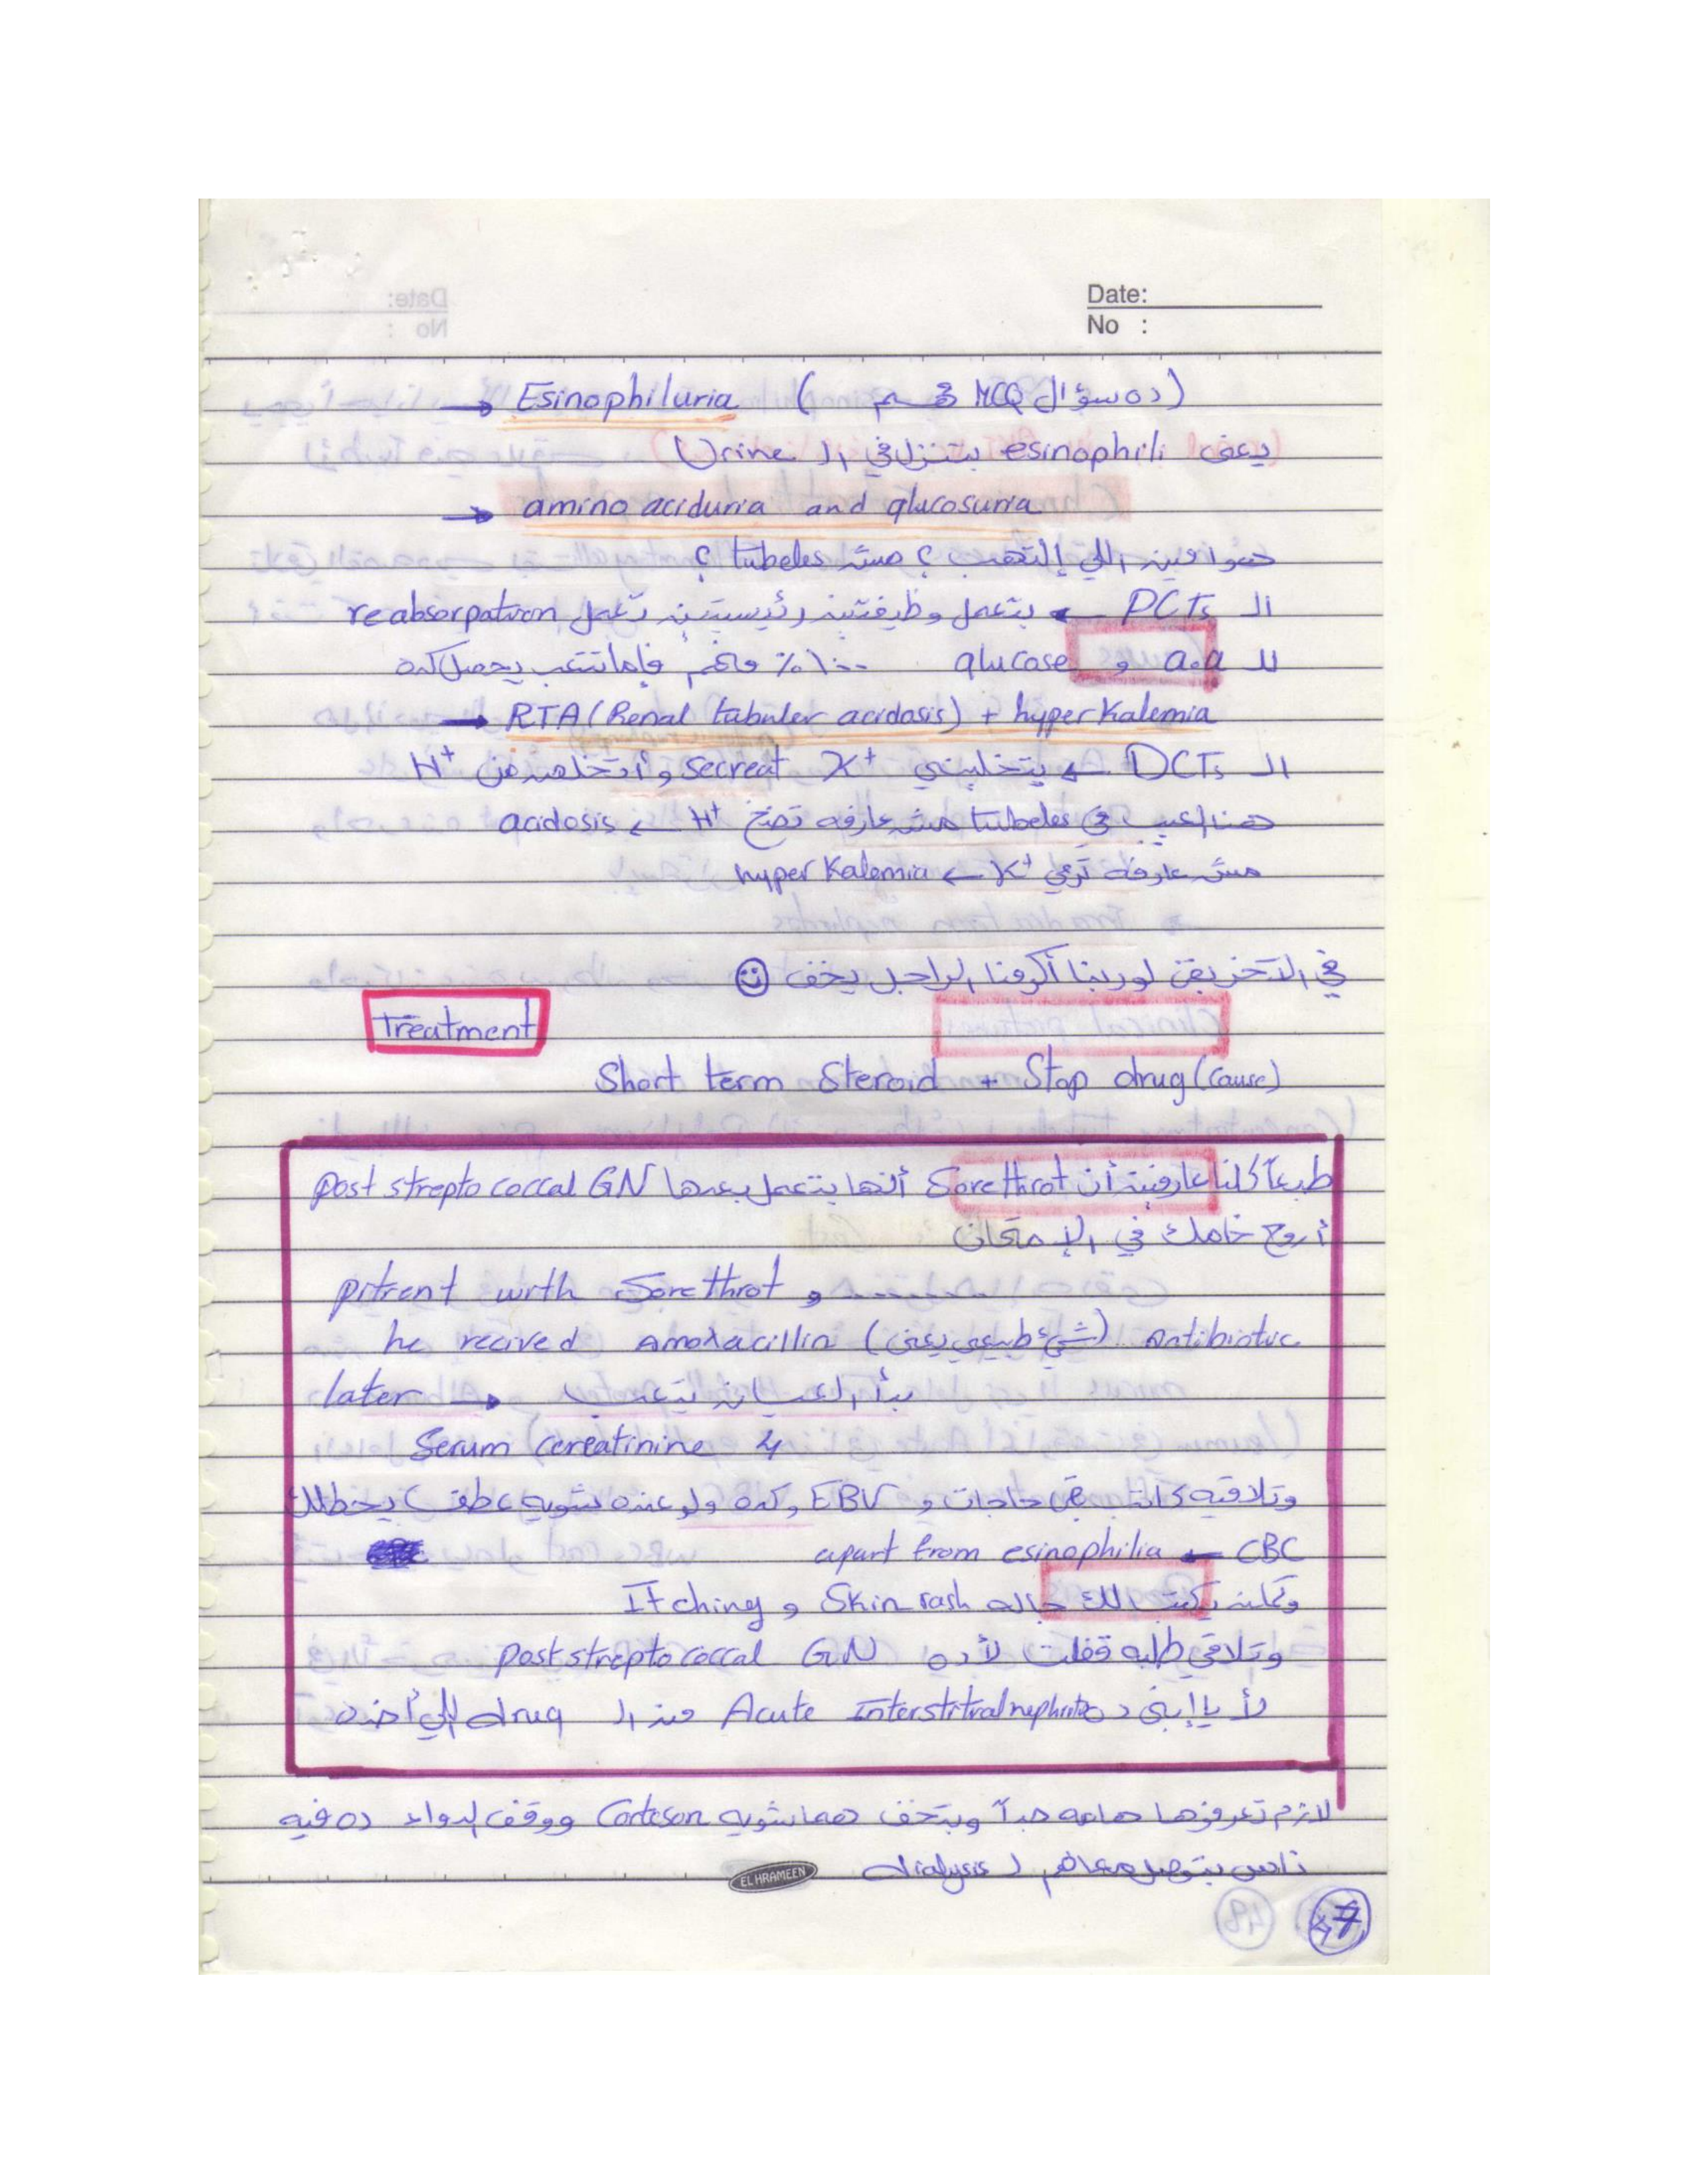 Date:
No :
→ Esinophiluria ( ده سؤال MCQ مهم )
يعني esinophili بتنزل في الـ Urine
→ amino aciduria and glucosuria
هو فين اللي إلتهب ؟ مش tubeles ؟
الـ PCTs ← بتعمل وظيفتين رئيستين تعمل reabsorpatron
للـ a.a و glucose ١٠٠٪ فلما تتعب يحصل كده
→ RTA (Renal tubuler acidosis) + hyperkalemia
الـ DCTs ← بتخليني secreat K⁺ وأتخلص من H⁺
هنا العيب في tubeles مش عارفه تضخ H⁺ ← acidosis
مش عارفة ترمي K⁺ ← hyper Kalemia
في الآخر بقى لو ربنا أكرمنا الراجل يخف ☺
Treatment
Short term Steroid + Stop drug (cause)
طبعاً كلنا عارفين أن Sore throt أنها بتعمل بعدها post strepto coccal GN
أروح جاملك في الإمتحان
pitrent with Sore throt و ..........
he recived amoxacillin (شيء طبيعي يعني) Antibiotic
later → بدأ العيان يتعب
Serum cereatinine 4
وتلاقيه كاتب حاجات و EBV وكده ولو عنده شويه عطف يحطلك
CBC ← apart from esinophilia
وكمان يكتب لك جاله Skin rash و Itching
وتلاقي طلبه قفلت لأ ده post strepto coccal GN
لأ يا إبني ده Acute Interstitial nephritis من الـ drug اللي أخده
لازم تعرفوها هامه جداً وبتخف هما شويه Corteson ووقف الدواء ده فيه
ناس بتوصل معاهم لـ dialysis
EL HRAMEEN
47